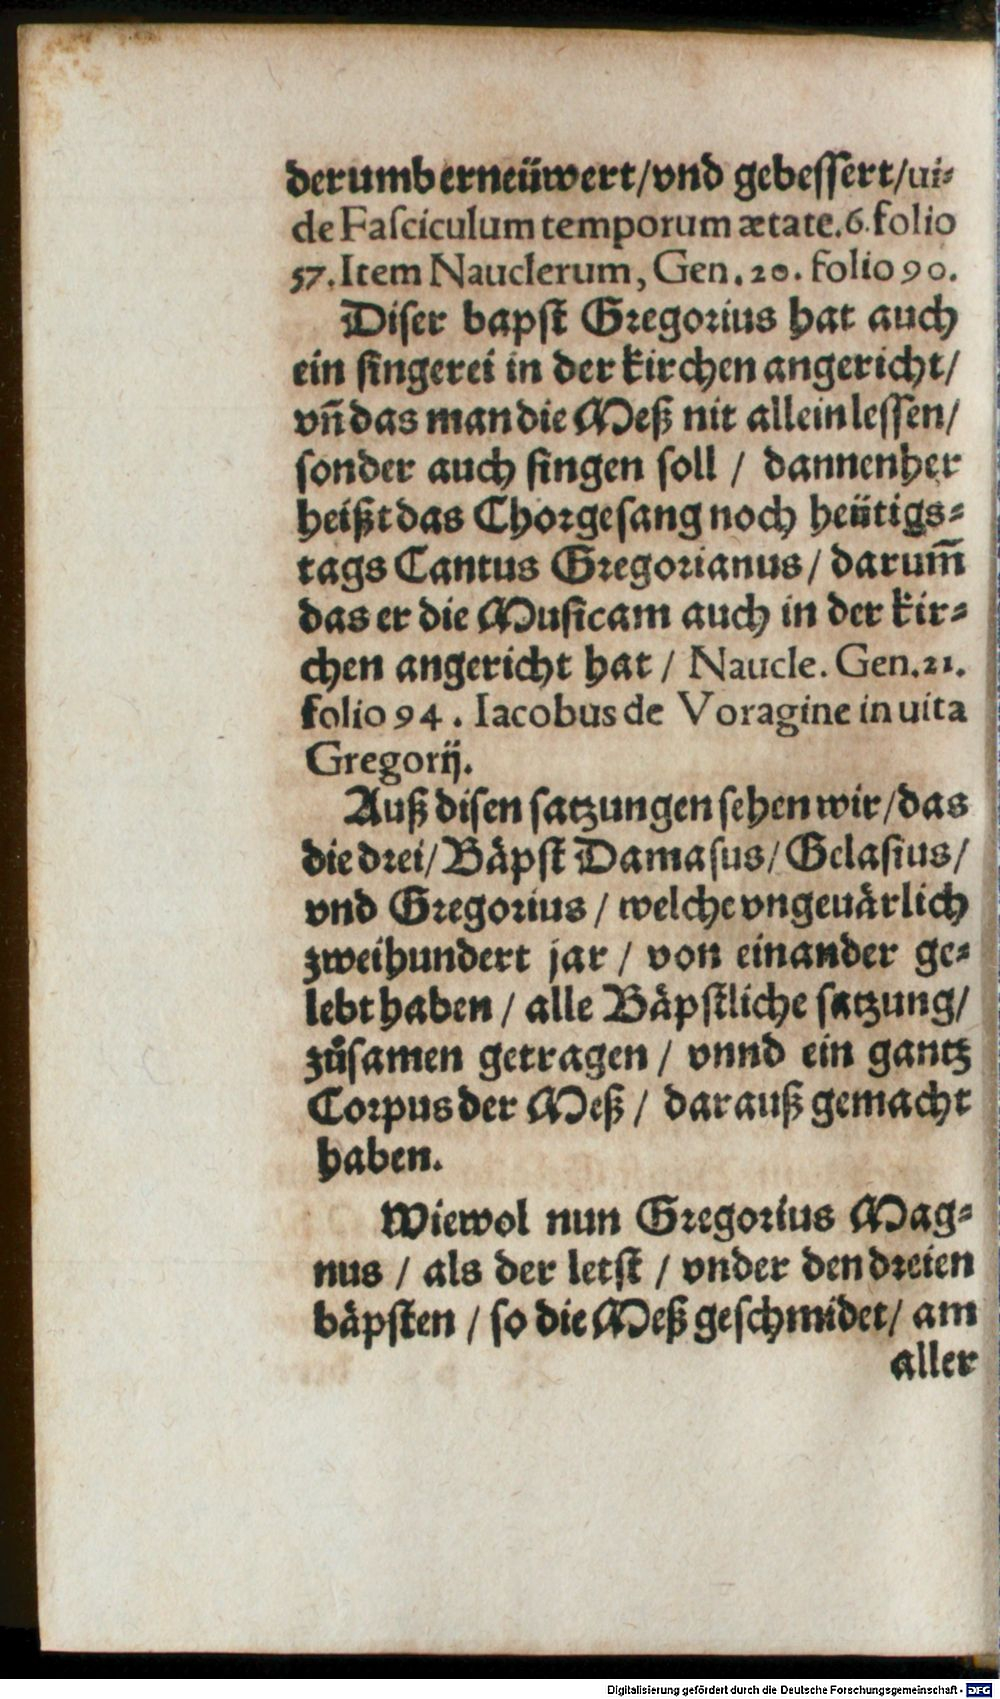 derumb erneüwert/vnd gebessert/ui⸗
de Fasciculum temporum ætate.6.folio
57.Item Nauclerum, Gen.20. folio 90.
Diser bapst Gregorius hat auch
ein singerei in der kirchen angericht/
vñ das man die Meß nit allein lessen/
sonder auch singen soll / dannenher
heißt das Chorgesang noch heütigs⸗
tags Cantus Gregorianus/ darum̃
das er die Musicam auch in der kir⸗
chen angericht hat / Naucle. Gen.21.
folio 94. Iacobus de Voragine in uita
Gregorij.
Auß disen satzungen sehen wir/das
die drei/ Bäpst Damasus/ Gelasius/
vnd Gregorius / welche vngeuärlich
zweihundert jar / von einander ge⸗
lebt haben / alle Bäpstliche satzung/
zůsamen getragen / vnnd ein gantz
Corpus der Meß / darauß gemacht
haben.
Wiewol nun Gregorius Mag⸗
nus / als der letst / vnder den dreien
bäpsten / so die Meß geschmidet/ am
aller
Digitalisierung gefördert durch die Deutsche Forschungsgemeinschaft - DFG